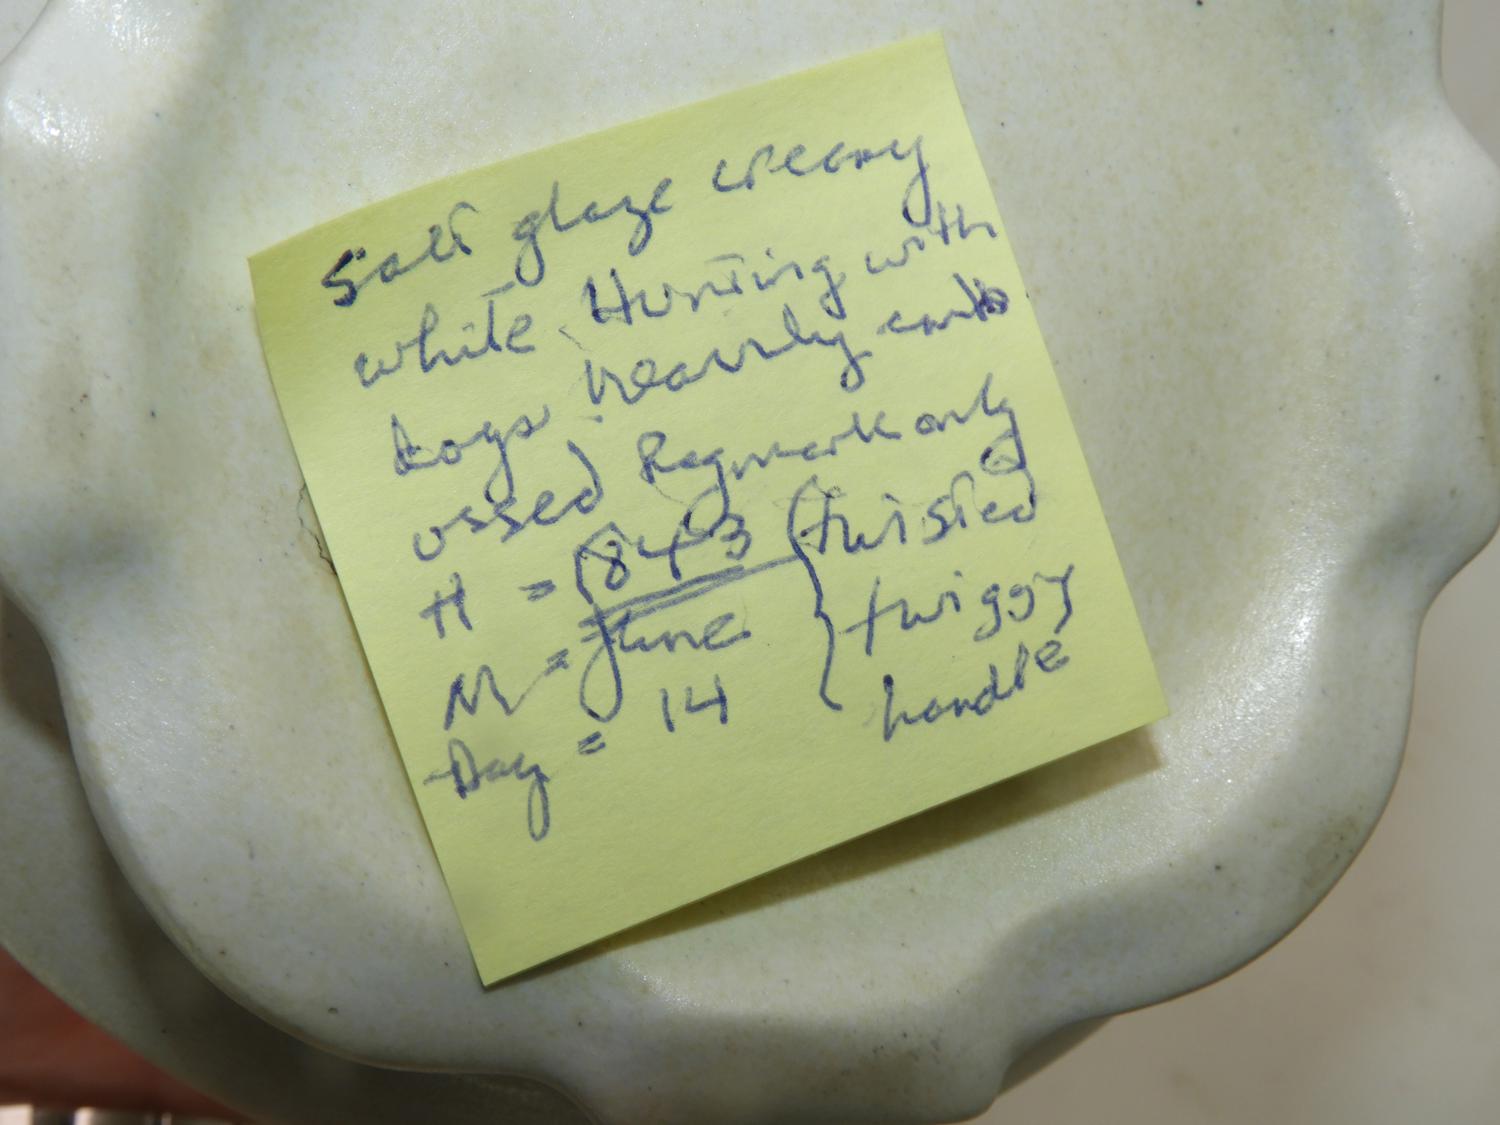 Salt glaze creamy
white Hunting with
dogs heavily emb
ossed Regmark only
H = 1843 (twisted
M = June twiggy
Day = 14 handle